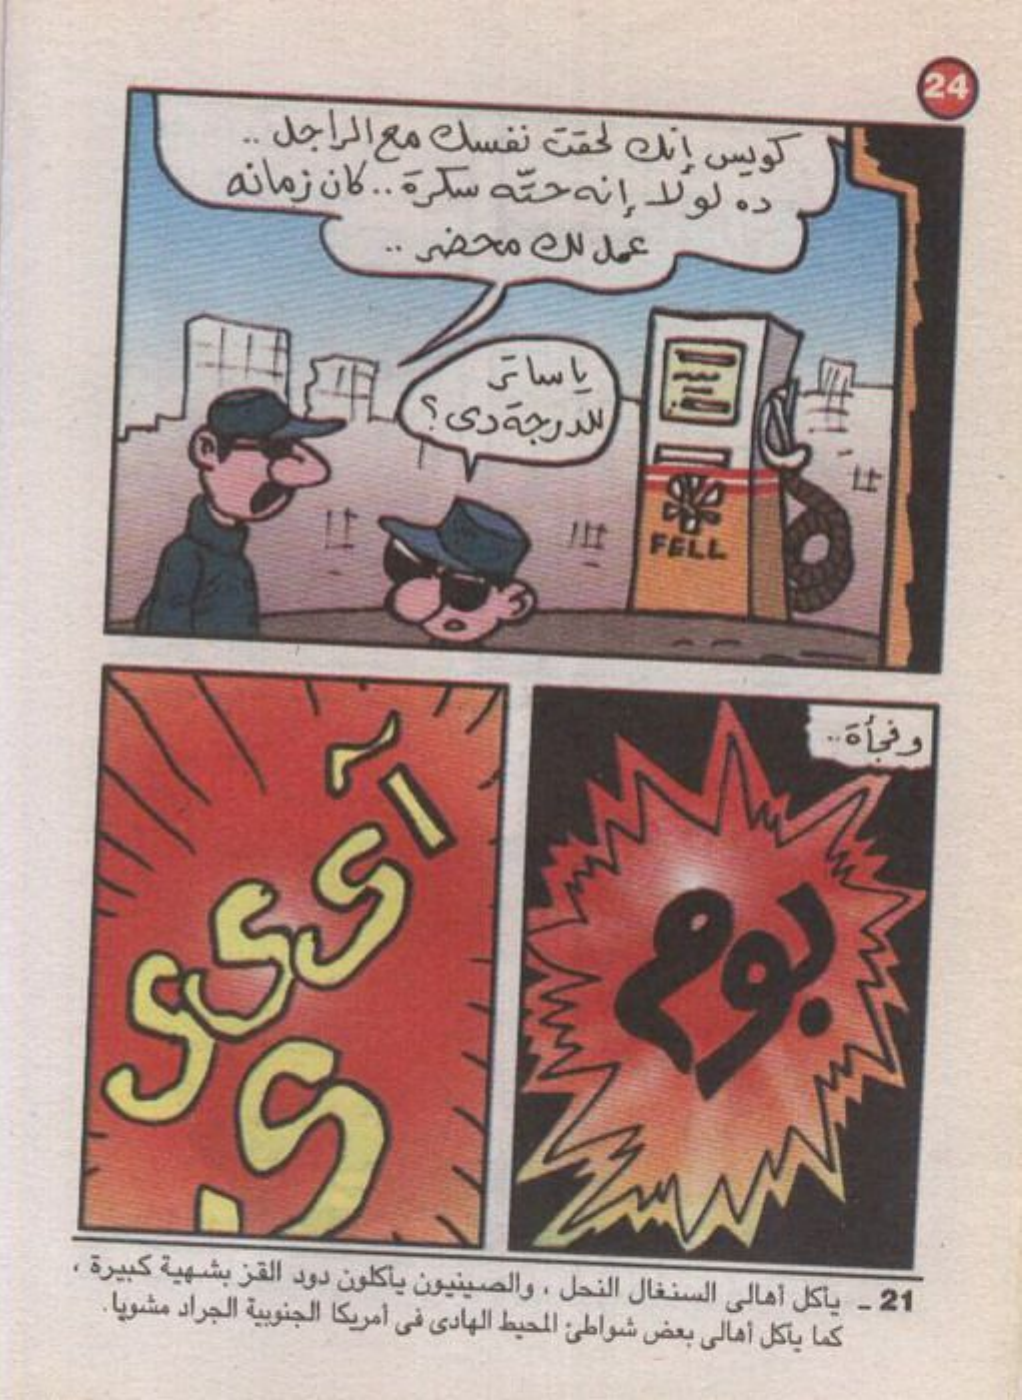 24
كويس إنك لحقت نفسك مع الراجل ..
ده لولا إنه حتّه سكرة .. كان زمانه
عمل لك محضر ..
يا ساتر
للدرجة دى ؟
FELL
وفجأة ..
بوم
آى ى ى ى
21 ـ يأكل أهالى السنغال النحل ، والصينيون يأكلون دود القز بشهية كبيرة ،
كما يأكل أهالى بعض شواطئ المحيط الهادى فى أمريكا الجنوبية الجراد مشويا .